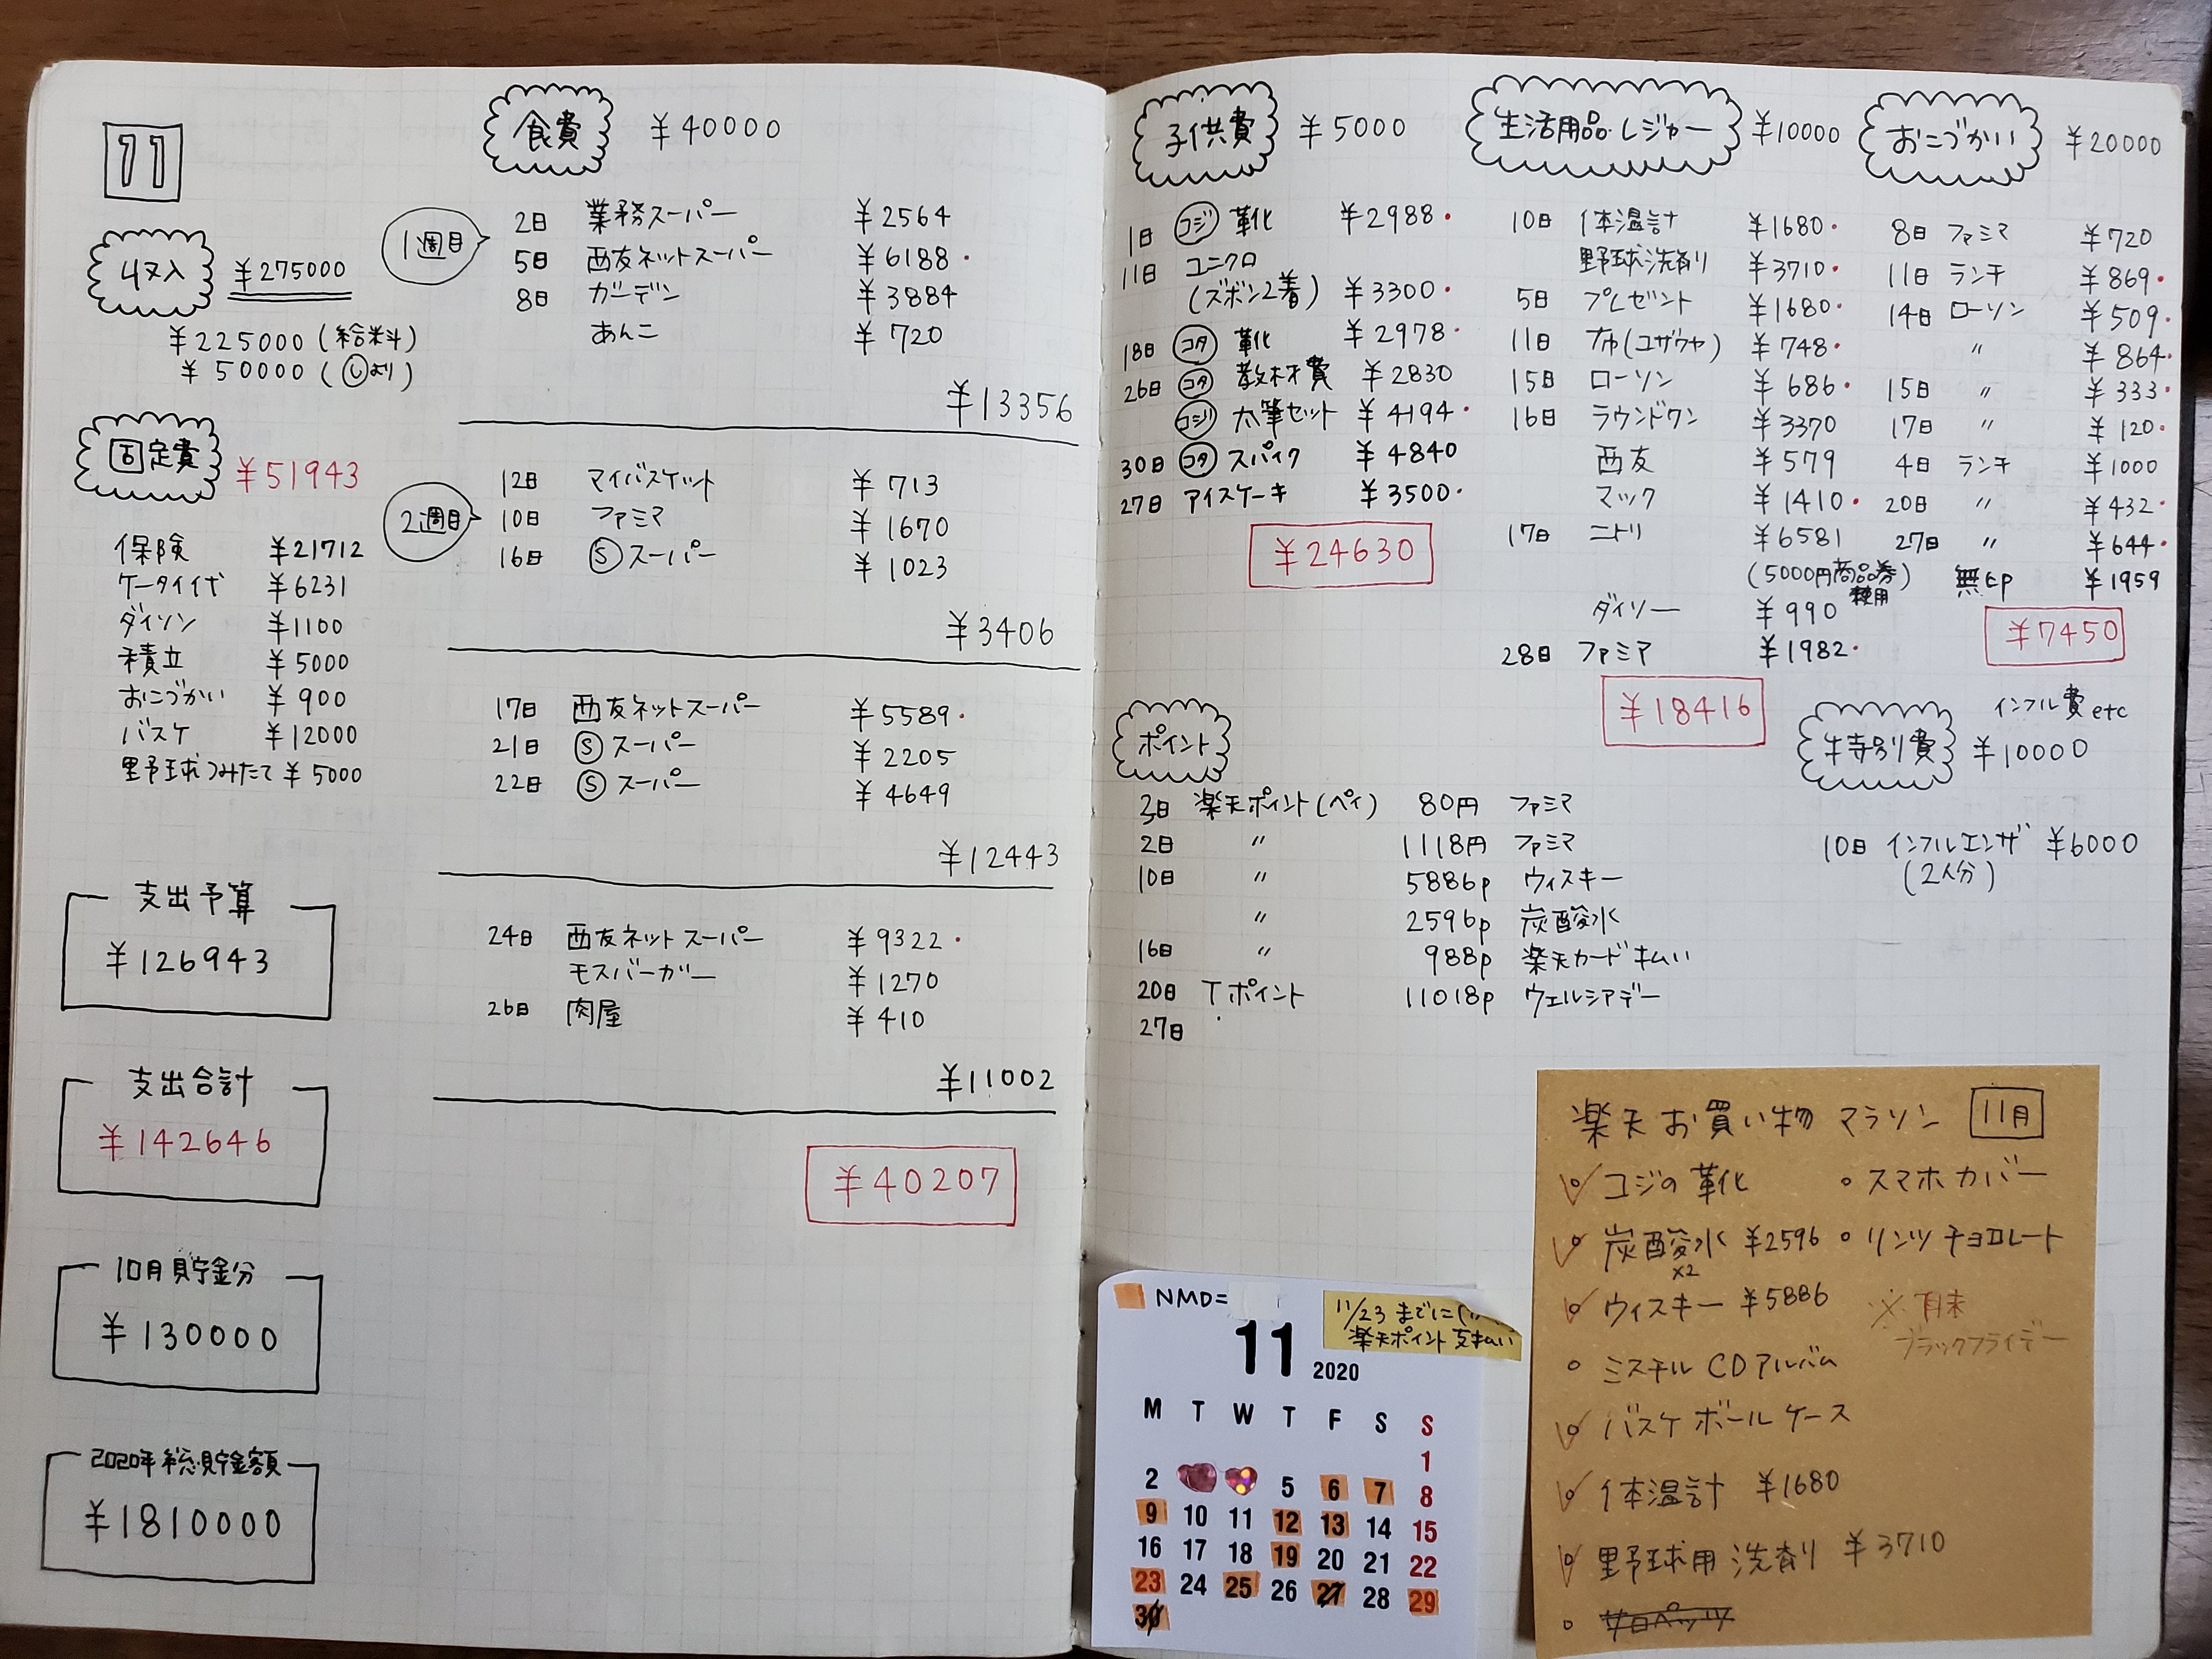 11
収入 ¥275000
¥225000(給料)
¥50000(しより)
固定費 ¥51943
保険 ¥21712
ケータイ代 ¥6231
ダイソン ¥1100
積立 ¥5000
おこづかい ¥900
バスケ ¥12000
野球つみたて ¥5000
支出予算
¥126943
支出合計
¥142646
10月貯金分
¥130000
2020年総貯金額
¥1810000
食費 ¥40000
1週目
2日 業務スーパー ¥2564
5日 西友ネットスーパー ¥6188・
8日 ガーデン ¥3884
あんこ ¥720
¥13356
2週目
12日 マイバスケット ¥713
10日 ファミマ ¥1670
16日 Ⓢスーパー ¥1023
¥3406
17日 西友ネットスーパー ¥5589・
21日 Ⓢスーパー ¥2205
22日 Ⓢスーパー ¥4649
¥12443
24日 西友ネットスーパー ¥9322・
モスバーガー ¥1270
26日 肉屋 ¥410
¥11002
¥40207
子供費 ¥5000
1日 コジ 靴 ¥2988・
11日 ユニクロ
(ズボン2着) ¥3300・
18日 コタ 靴 ¥2978・
26日 コタ 教材費 ¥2830
コジ 太筆セット ¥4194・
30日 コタ スパイク ¥4840
27日 アイスケーキ ¥3500・
¥24630
生活用品・レジャー ¥10000
10日 体温計 ¥1680・
野球洗剤 ¥3710・
5日 プレゼント ¥1680・
11日 布(ユザワヤ) ¥748・
15日 ローソン ¥686・
16日 ラウンドワン ¥3370
西友 ¥579
マック ¥1410・
17日 ニトリ ¥6581
(5000円商品券使用)
ダイソー ¥990
28日 ファミマ ¥1982・
¥18416
おこづかい ¥20000
8日 ファミマ ¥720
11日 ランチ ¥869・
14日 ローソン ¥509・
〃 ¥864・
15日 〃 ¥333・
17日 〃 ¥120・
4日 ランチ ¥1000
20日 〃 ¥432・
27日 〃 ¥644・
無印 ¥1959
¥7450
ポイント
3日 楽天ポイント(ペイ) 80円 ファミマ
2日 〃 1118円 ファミマ
10日 〃 5886p ウィスキー
〃 2596p 炭酸水
16日 〃 988p 楽天カード払い
20日 Tポイント 11018p ウェルシアデー
27日
インフル費etc
特別費 ¥10000
10日 インフルエンザ ¥6000
(2人分)
NMD=
11/23 までに
楽天ポイント支払い
11 2020
M T W T F S S
1
2 5 6 7 8
9 10 11 12 13 14 15
16 17 18 19 20 21 22
23 24 25 26 27 28 29
30
楽天お買い物マラソン 11月
コジの靴
スマホカバー
炭酸水 ¥2596
×2
リンツチョコレート
ウィスキー ¥5886
※月末
ブラックフライデー
ミスチルCDアルバム
バスケボールケース
体温計 ¥1680
野球用洗剤 ¥3710